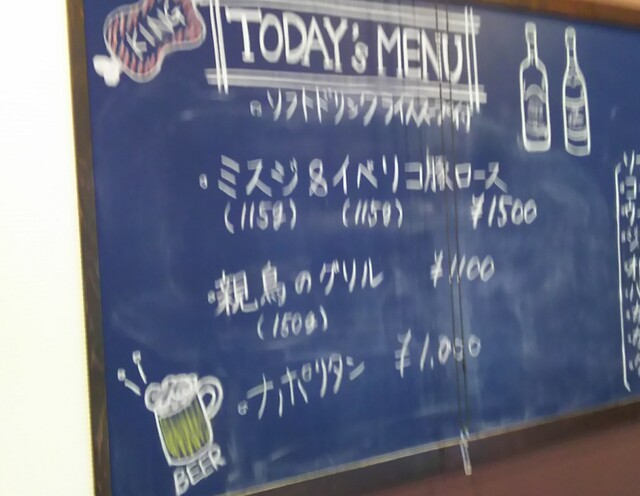 KING
TODAY's MENU
ソフトドリンク ライス
ミスジ&イベリコ豚ロース
(115g) (115g) ¥1500
親鳥のグリル ¥1,100
(150g)
ナポリタン ¥1,000
BEER